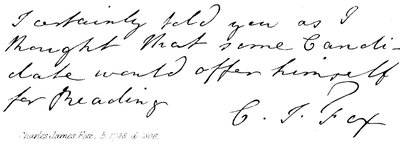 I certainly told you as I
thought that some Candi-
date would offer himself
for Reading
C. J. Fox
Charles James Fox, b. 1748 d. 1806.